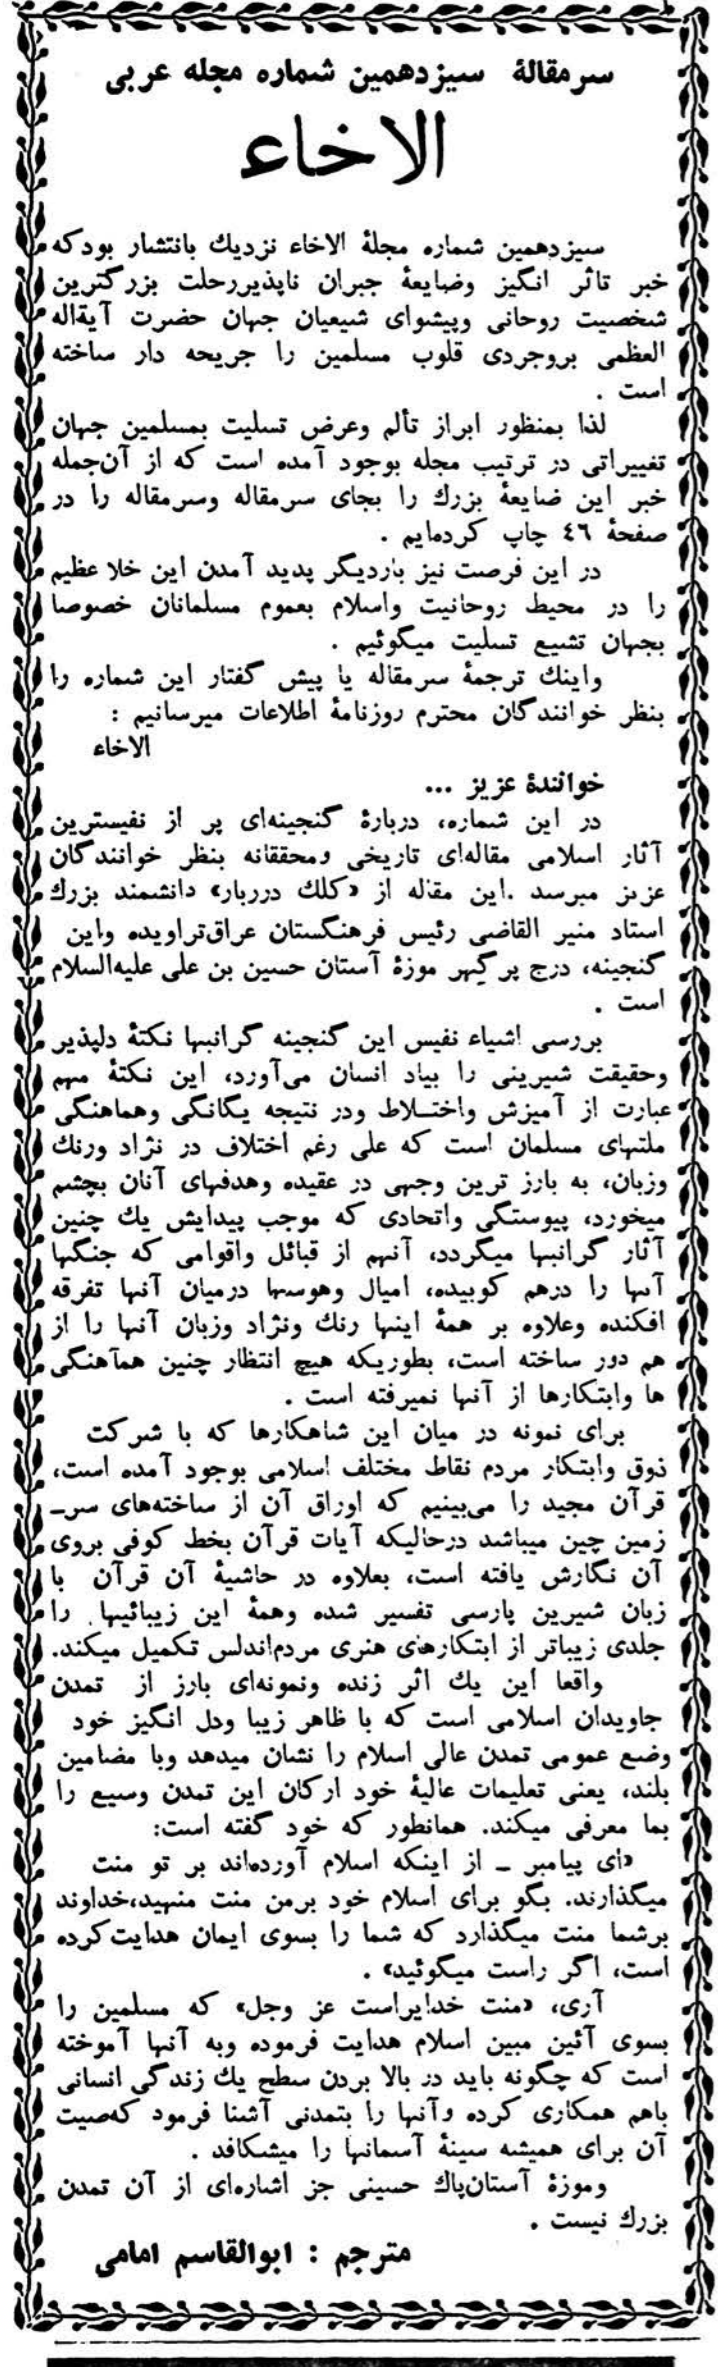 سرمقالهٔ سیزدهمین شماره مجله عربی
الاخاء
سیزدهمین شماره مجلهٔ الاخاء نزدیك بانتشار بودکه
خبر تاثر انگیز وضایعهٔ جبران ناپذیررحلت بزرگترین
شخصیت روحانی وپیشوای شیعیان جهان حضرت آیةاله
العظمی بروجردی قلوب مسلمین را جریحه دار ساخته
است .
لذا بمنظور ابراز تألم وعرض تسلیت بمسلمین جهان
تغییراتی در ترتیب مجله بوجود آمده است که از آن‌جمله
خبر این ضایعهٔ بزرك را بجای سرمقاله وسرمقاله را در
صفحهٔ ٤٦ چاپ کرده‌ایم .
در این فرصت نیز باردیگر پدید آمدن این خلا عظیم
را در محیط روحانیت واسلام بعموم مسلمانان خصوصا
بجهان تشیع تسلیت میگوئیم .
واینك ترجمهٔ سرمقاله یا پیش گفتار این شماره را
بنظر خوانندگان محترم روزنامهٔ اطلاعات میرسانیم :
الاخاء
خوانندهٔ عزیز ...
در این شماره، دربارهٔ گنجینه‌ای پر از نفیسترین
آثار اسلامی مقاله‌ای تاریخی ومحققانه بنظر خوانندگان
عزیز میرسد .این مقاله از «کلك درربار» دانشمند بزرك
استاد منیر القاضی رئیس فرهنگستان عراق‌تراویده واین
گنجینه، درج پر گهر موزهٔ آستان حسین بن علی علیه‌السلام
است .
بررسی اشیاء نفیس این گنجینه گرانبها نکتهٔ دلپذیر
وحقیقت شیرینی را بیاد انسان می‌آورد، این نکتهٔ مهم
عبارت از آمیزش واختـلاط ودر نتیجه یگانگی وهماهنگی
ملتهای مسلمان است که علی رغم اختلاف در نژاد ورنك
وزبان، به بارز ترین وجهی در عقیده وهدفهای آنان بچشم
میخورد، پیوستگی واتحادی که موجب پیدایش یك چنین
آثار گرانبها میگردد، آنهم از قبائل واقوامی که جنگها
آنها را درهم کوبیده، امیال وهوسها درمیان آنها تفرقه
افکنده وعلاوه بر همهٔ اینها رنك ونژاد وزبان آنها را از
هم دور ساخته است، بطوریکه هیچ انتظار چنین همآهنگی
ها وابتکارها از آنها نمیرفته است .
برای نمونه در میان این شاهکارها که با شرکت
ذوق وابتکار مردم نقاط مختلف اسلامی بوجود آمده است،
قرآن مجید را می‌بینیم که اوراق آن از ساخته‌های سرـ
زمین چین میباشد درحالیکه آیات قرآن بخط کوفی بروی
آن نگارش یافته است، بعلاوه در حاشیهٔ آن قرآن با
زبان شیرین پارسی تفسیر شده وهمهٔ این زیبائیها را
جلدی زیباتر از ابتکارهای هنری مردم‌اندلس تکمیل میکند.
واقعا این یك اثر زنده ونمونه‌ای بارز از تمدن
جاویدان اسلامی است که با ظاهر زیبا ودل انگیز خود
وضع عمومی تمدن عالی اسلام را نشان میدهد وبا مضامین
بلند، یعنی تعلیمات عالیهٔ خود ارکان این تمدن وسیع را
بما معرفی میکند. همانطور که خود گفته است:
«ای پیامبر ـ از اینکه اسلام آورده‌اند بر تو منت
میگذارند. بگو برای اسلام خود برمن منت منهید،خداوند
برشما منت میگذارد که شما را بسوی ایمان هدایت‌کرده
است، اگر راست میگوئید» .
آری، «منت خدایراست عز وجل» که مسلمین را
بسوی آئین مبین اسلام هدایت فرموده وبه آنها آموخته
است که چگونه باید در بالا بردن سطح یك زندگی انسانی
باهم همکاری کرده وآنها را بتمدنی آشنا فرمود که‌صیت
آن برای همیشه سینهٔ آسمانها را میشکافد .
وموزهٔ آستان‌پاك حسینی جز اشاره‌ای از آن تمدن
بزرك نیست .
مترجم : ابوالقاسم امامی